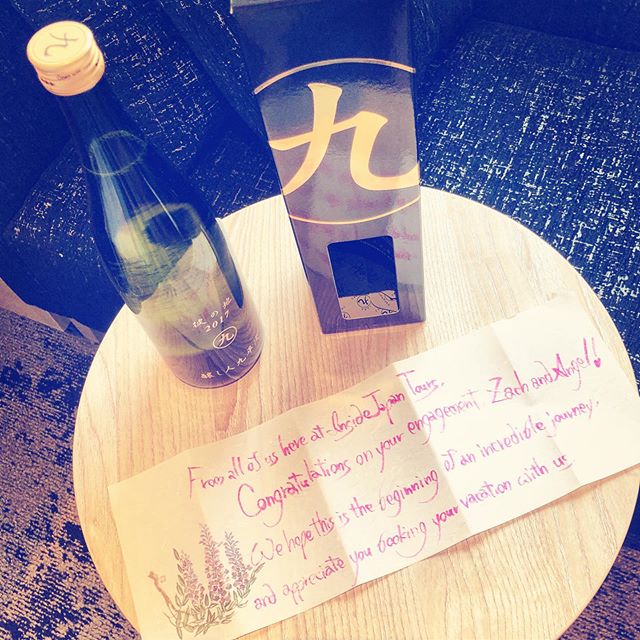 九
九
彼の地
2017
九
醸し人九
From all of us here at InsideJapan Tours,
Congratulations on your engagement Zach and Angel!
We hope this is the beginning of an incredible journey.
and appreciate you booking your vacation with us